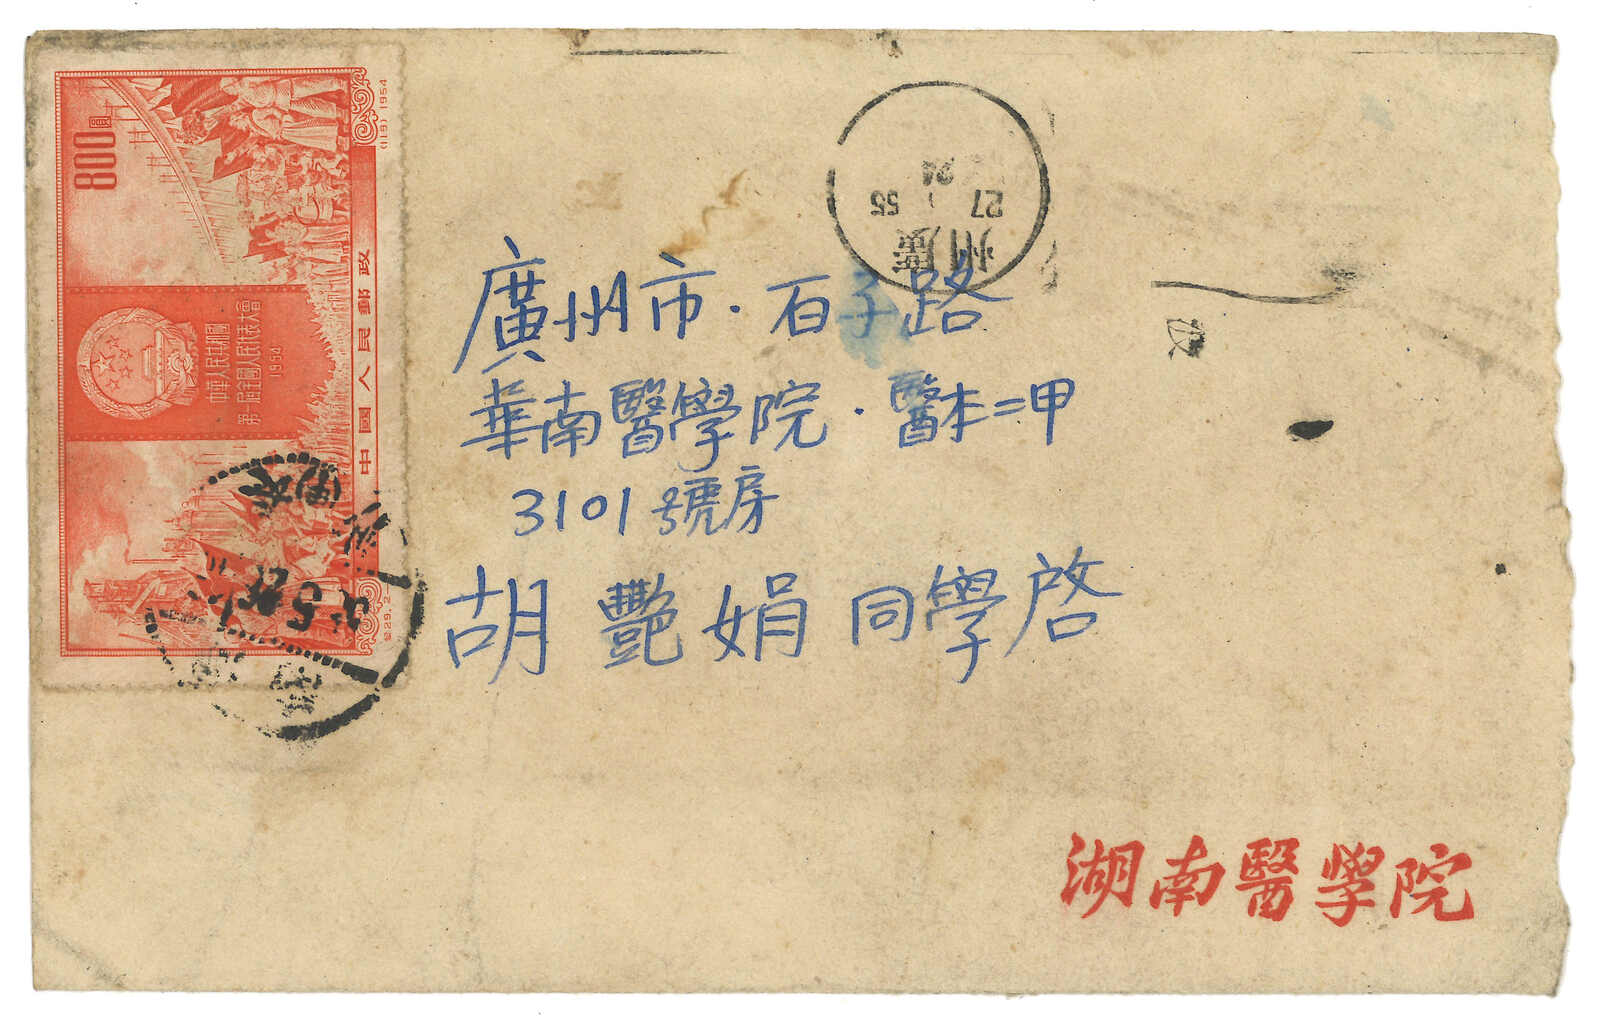 廣州市·石子路
華南醫學院·醫本二甲
3101號房
胡艷娟同學啓
湖南醫學院
800圓
中華人民共和國
第一屆全國人民代表大會
1954
中國人民郵政
紀29.2—
(119) 1954
廣州
27 55
24